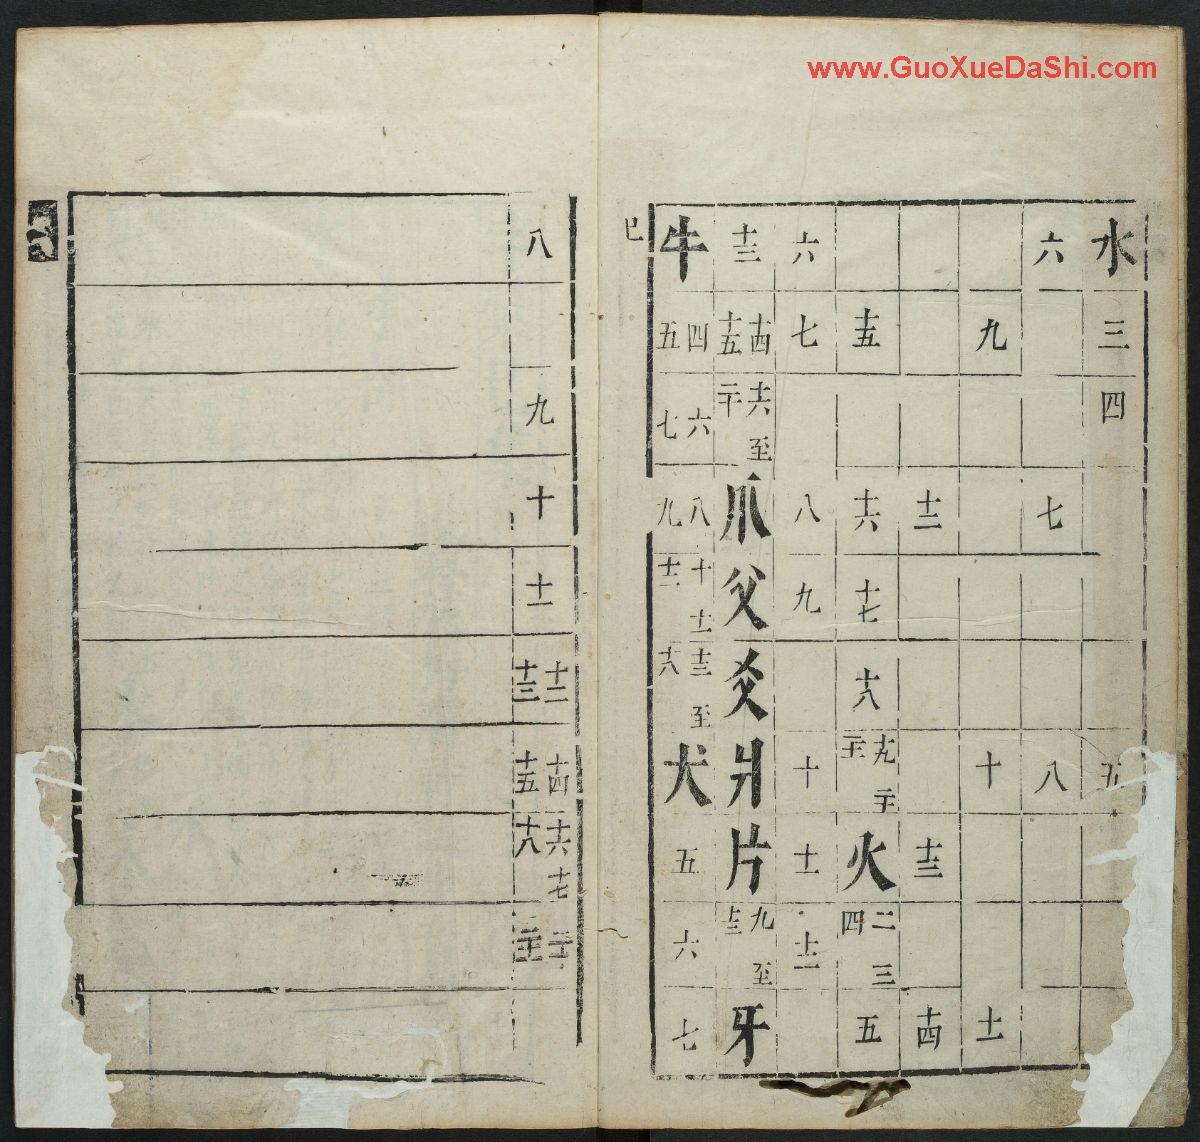 www.GuoXueDaShi.com
水三四五
六七八
九十十一
十二十三十四
十五十六十七十八十九二十二十一火二三四五
六七八九十十一十二
十三十四十五十六至二十爪父爻爿片九至十三牙
牛四五六七八九十十一十二十三至十八犬五六七
巳
八九十十一十二十三十四十五十六十七十八二十